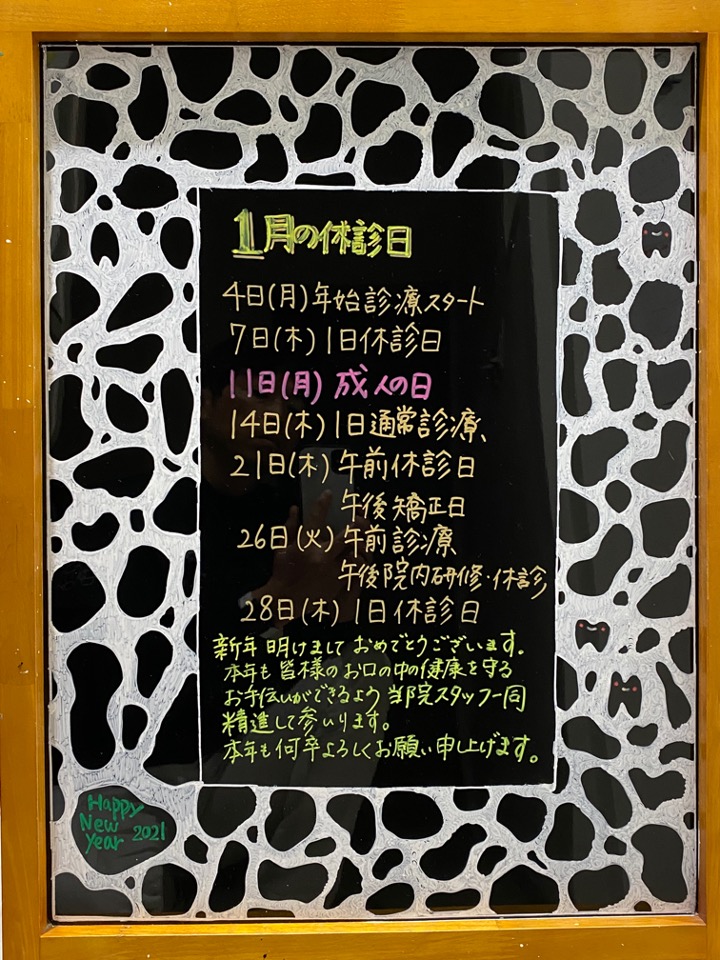 1月の休診日
4日(月)年始診療スタート
7日(木)1日休診日
11日(月)成人の日
14日(木)1日通常診療、
21日(木)午前休診日
午後矯正日
26日(火)午前診療
午後院内研修・休診
28日(木)1日休診日
新年 明けまして おめでとうございます。
本年も 皆様の お口の中の健康を守る
お手伝いができるよう 当院スタッフ一同
精進して参いります。
本年も何卒よろしくお願い申し上げます。
Happy
New
Year 2021